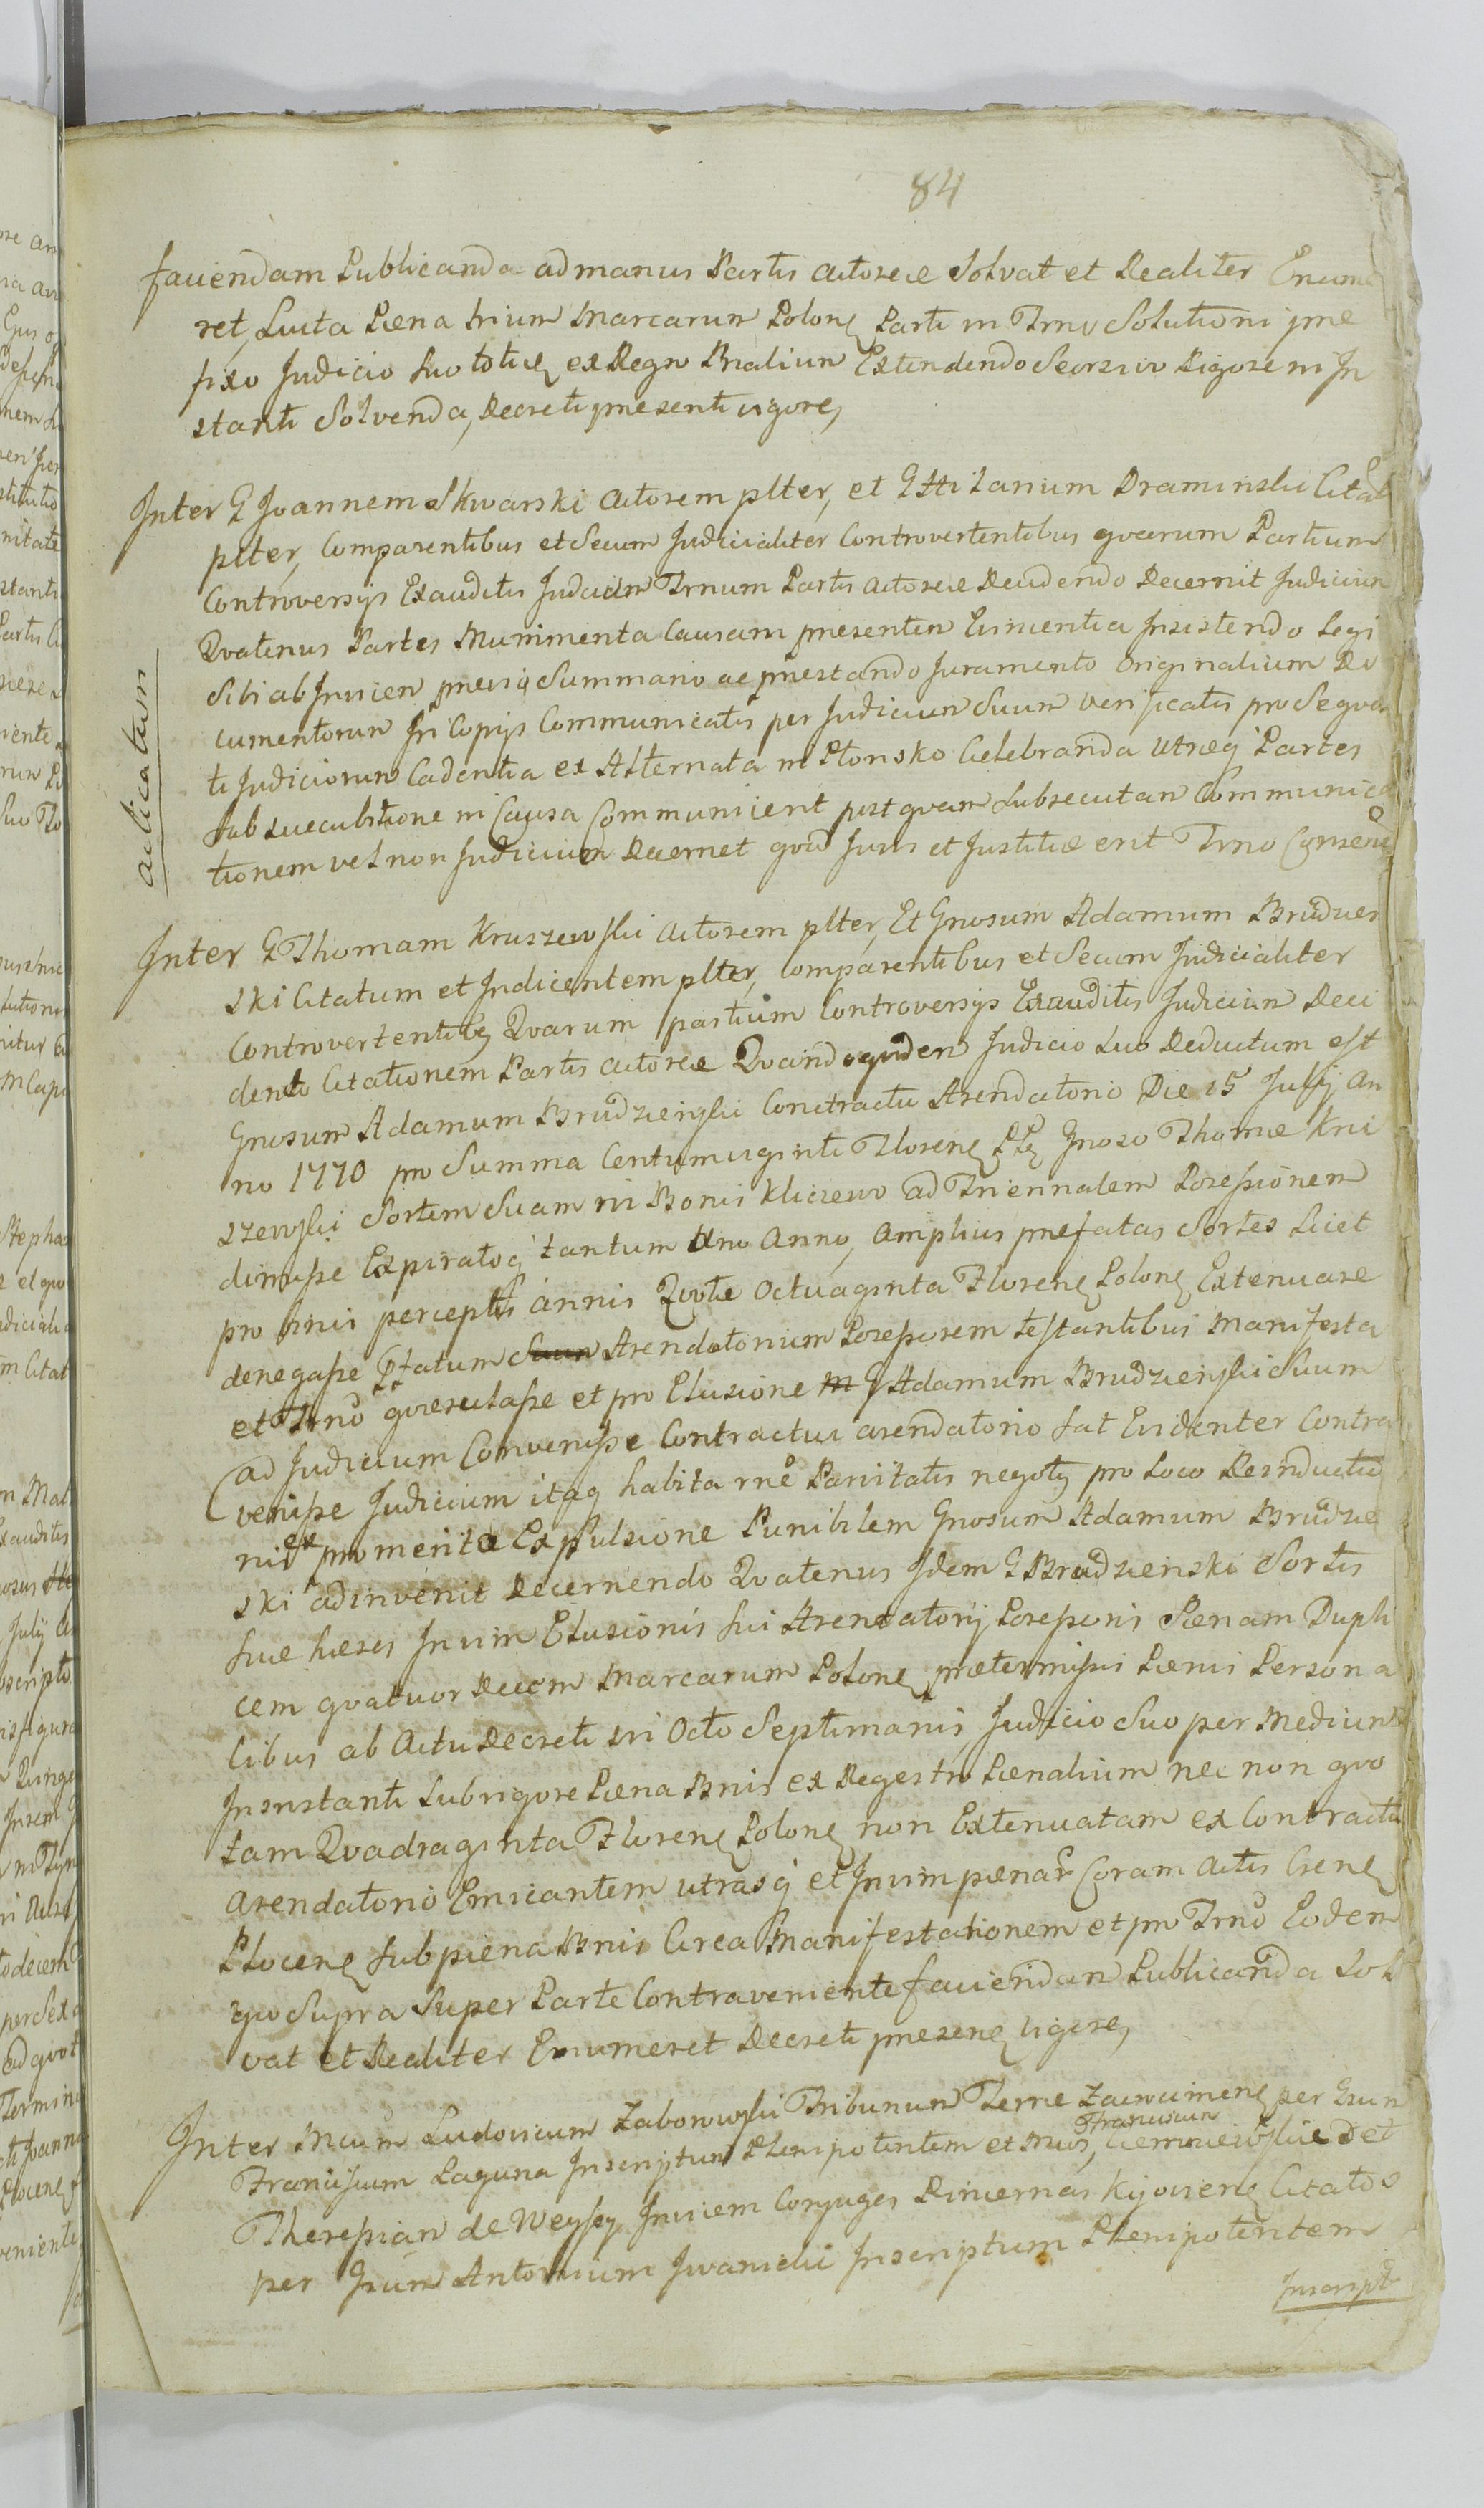 84
faciendam Publicanda ad manus Partis actoreae Solvat et Realiter Enume
ret, Luita Paena trium Marcarum Polon Parti in Trno Solutioni prae
fixo Judicio Suo toties ex Regro Bnaliun Extendendo Seorsivo Rigore in In
stanti Solvenda, Decreti presenti vigore,
Inter G Joannem Skwarski actorem plter, et G Hilarium Draminski Citat
plter, Comparentibus et Secum Judicialiter Controvertentibus qvarum Partium
Controversijs Exauditis Judicium Trnum Partis actoreae Decidendo Decernit Judicium
Qvatenus Partes Munimenta Causam presentem Evincentia Insistendo Legi
Sibi ab Invicem previo Summario ac prestando Juramento originalium Do
cumentorum In Copijs Communicatis per Judicium Suum verificatis pro Seqven
ti Judiciorum Cadentia ex Alternata in Płonsko Celebranda utraeq Partes
Sub succubitione in Causa Communicent post qvam Subsecutam Communica
tionem vel non Judicium Decernet qvod Juris et Justitiae erit Trno Conserv
Inter G Thomam Kruszewski actorem plter, Et Gnosum Adamum Brudzen
ski Citatum et Indicentem plter, Comparentibus et Secum Judicialiter
Controvertentibus Qvarum partium Controversijs Exauditis Judicium Deci
dendo Citationem Partis actoreae Qvandoqvidem Judicio Suo Deductum est
Gnosum Adamum Brudzienski Contractu Arendatorio Die 15 Julij An
no 1770 pro Summa Centum viginti Floren Pl Gnoso Thomae Kru
szewski Sortem Suam in Bonis Kliczewo ad Triennalem Possessionem
dimisse Expiratoq tantum Uno Anno, Amplius praefatas Sortes Licet
pro binis perceptis annis Qvotae octuaginta Floren Polon Extenuare
denegasse Pfatum Suum Arendatorium Possessorem testantibus Manifesta
et Trno qverulasse et pro Elusione G Adamum Brudzienski Suum
ad Judicium Convenisse Contractui arendatorio Sat Evidenter Contra
venisse Judicium itaq habita rne Parvitatis negotij pro Loco Reinductio
nis ex promerita Expulsione Punibilem Gnosum Adamum Brudzie
ski adinvenit Decernendo Qvatenus Idem G Brudzienski Sortis
Suae haeres In vim Elusionis Sui Arendatorij Possessoris Paenam Dupli
cem qvatuor Decem Marcarum Polon praetermissis Paenis Persona
libus ab Actu Decreti in Octo Septimanis Judicio Suo per Medium
In instanti Sub rigore Paena Bnis ex Regestro Paenalium nec non qvo
tam Qvadraginta Floren Polon non Extenuatam ex Contractu
Arendatorio Emicantem utrasq et In vim paenar Coram Actis Cren
Plocen Sub paena Bnis Circa Manifestationem et pro Trno Eodem
qvo Supra Super Parte Contraveniente faciendam Publicanda Sol
vat et Realiter Enumeret Decreti presen vigore,
Inter Mcum Ludovicum Zaborowski Tribunum Terrae Zawcrinen per Gsum
Franciscum
Franciscum Laguna Inscriptum Plenipotentem et Mcos, Ciemniewskie et
Theressiam de Weyssy Invicem Conjuges Pincernas Kijovien Citatos
per Gsum Antonium Iwanicki Inscriptum Plenipotentem
Inscript